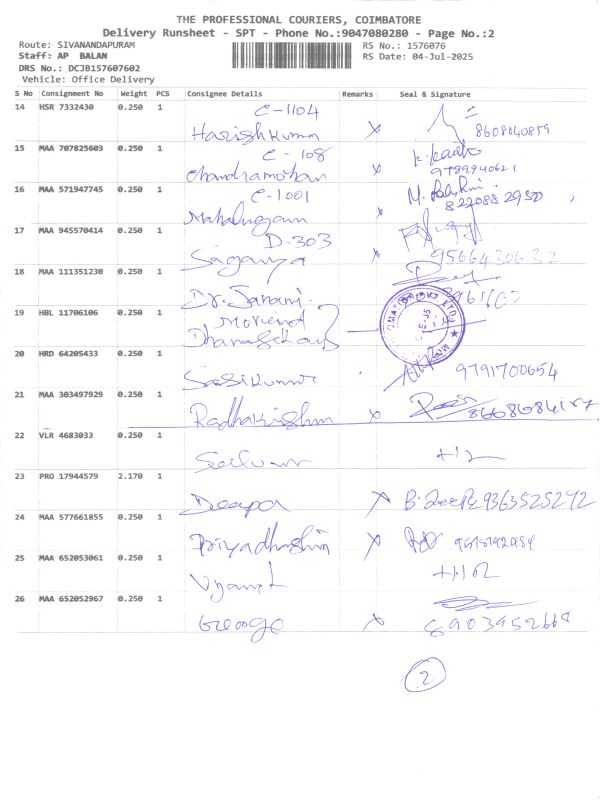 THE PROFESSIONAL COURIERS, COIMBATORE
Delivery Runsheet - SPT - Phone No.:9047080280 - Page No.:2
Route: SIVANANDAPURAM RS No.: 1576076
Staff: AP BALAN RS Date: 04-Jul-2025
DRS No.: DCJB157607602
Vehicle: Office Delivery
S No Consignment No Weight PCS Consignee Details Remarks Seal & Signature
14 HSR 7332430 0.250 1 C-1104
Harish Kumar x 8608040859
15 MAA 707825603 0.250 1 C-108
Chandramohan x 9789940621
16 MAA 571947745 0.250 1 C-1001
x 822088 2950
17 MAA 945570414 0.250 1 D-303
Saganya x 9566430632
18 MAA 111351230 0.250 1
Dr. Sanani
19 HBL 11706106 0.250 1
Dhanasekar
20 HRD 64205433 0.250 1
Sasikumar 9791700654
21 MAA 303497929 0.250 1
Radhakrishnan x 8668684187
22 VLR 4683033 0.250 1
Selvam
23 PRO 17944579 2.170 1
Deepa x 9363525272
24 MAA 577661855 0.250 1
Priyadharshin x
25 MAA 652053061 0.250 1
26 MAA 652052967 0.250 1
George x 8903952668
2